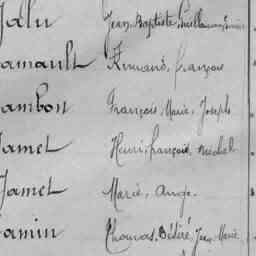 Jalu Jean Baptiste Guillaume
Jamault Armand, François
Jambon François, Marie, Joseph
Jamet Henri, François, Michel
Jamet Marie, Ange.
Jamin Thomas, Désiré, Jean Marie